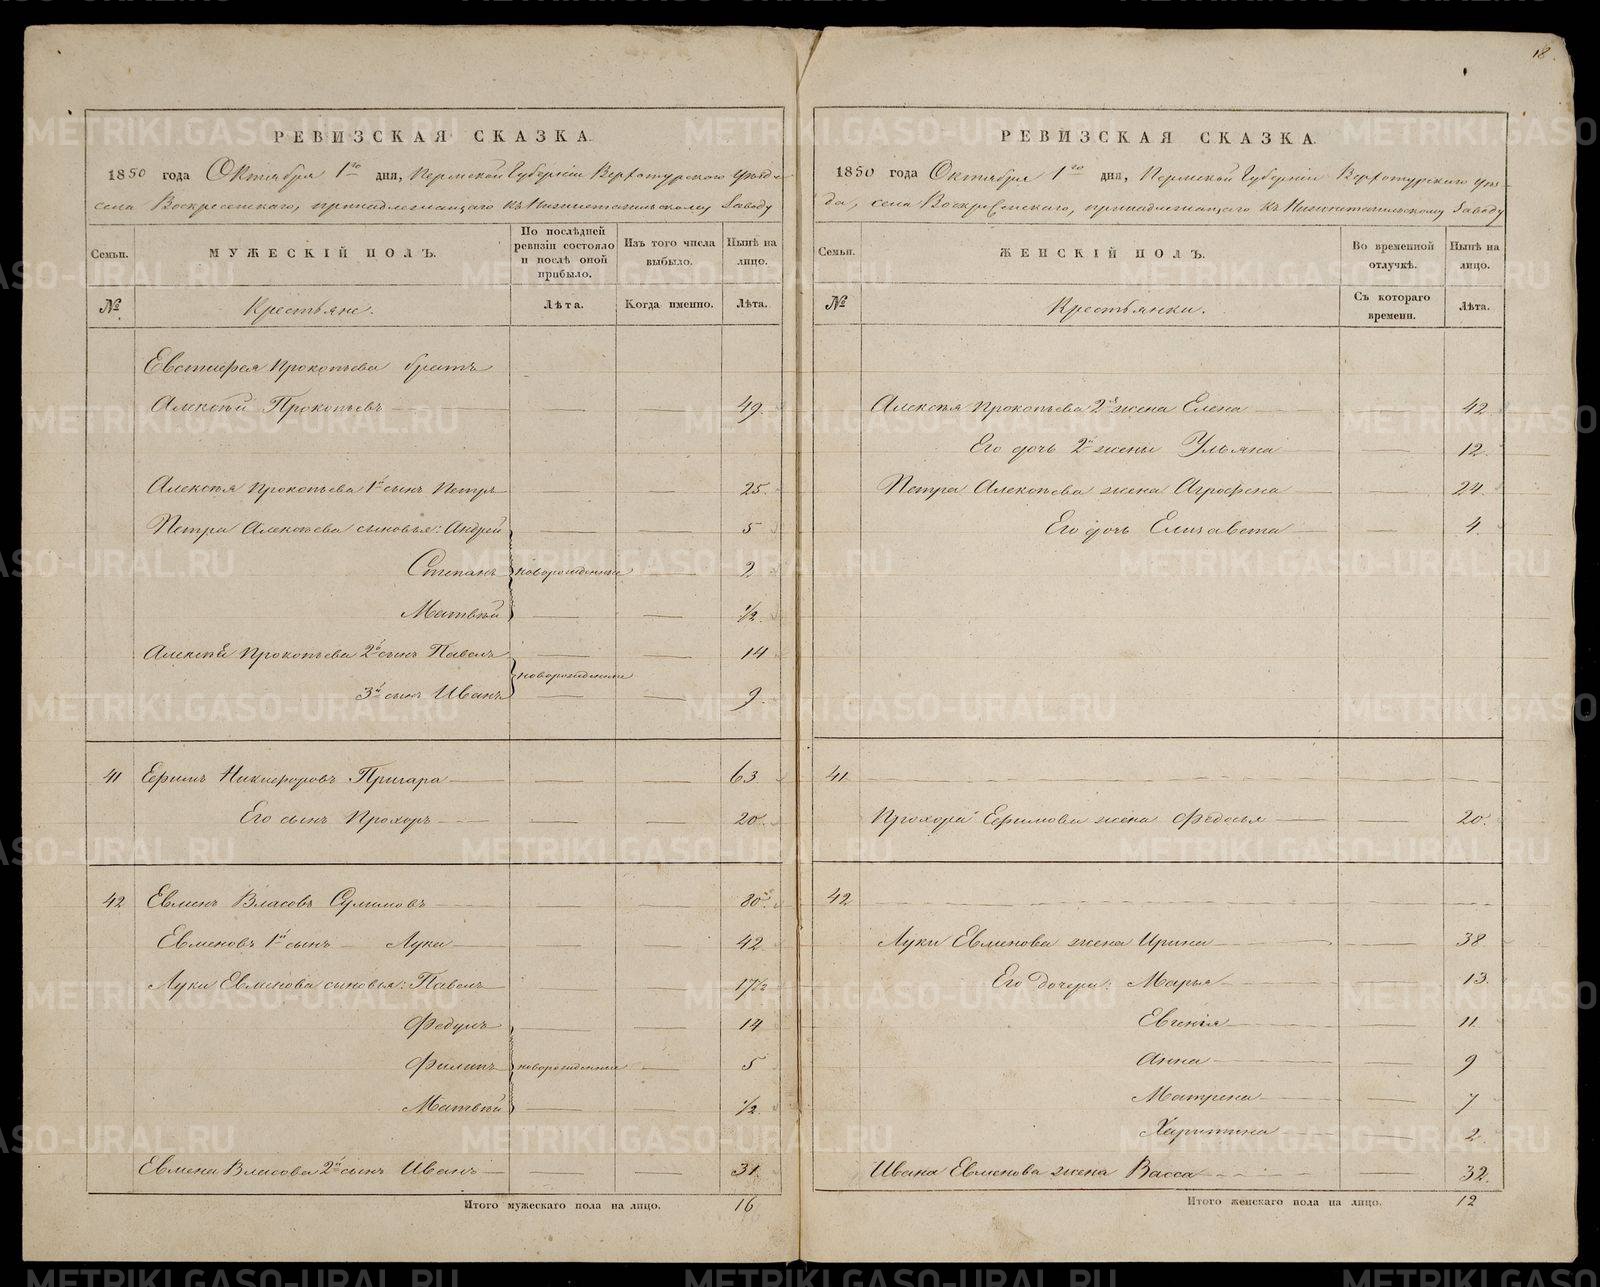 18.
РЕВИЗСКАЯ СКАЗКА.
1850 года Октября 1го дня, Пермской Губернiи Верхотурского уѣзда
села Воскресенскаго, принадлежащаго къ Нижнетагильскому Заводу
Семьи. МУЖЕСКIЙ ПОЛЪ. По послѣдней ревизiи состояло и послѣ оной прибыло. Изъ того числа выбыло. Нынѣ на лицо.
№ Крестьяне. Лѣта. Когда именно. Лѣта.
Евстифея Прокопьева братъ
Алексѣй Прокопьевъ 49.
Алексѣя Прокопьева 1й сынъ Петръ 25.
Петра Алексѣева сыновья: Андрей 5
Степанъ новорожденные 2
Матвѣй 1/2.
Алексѣя Прокопьева 2й сынъ Павелъ 14
новорожденные
3й сынъ Иванъ 9.
41 Ефимъ Никифоровъ Пригара 63.
Его сынъ Прохоръ 20.
42 Евменъ Власовъ Сулимовъ 80.
Евменовъ 1й сынъ Лука 42
Луки Евменова сыновья: Павелъ 17 1/2
Федулъ 14
Филипъ новорожденные 5
Матвѣй 1/2.
Евмена Власова 2й сынъ Иванъ 31.
Итого мужескаго пола на лицо. 16
РЕВИЗСКАЯ СКАЗКА.
1850 года Октября 1го дня, Пермской Губернiи Верхотурскаго уѣз-
да, села Воскресенскаго, принадлежащаго къ Нижнетагильскому Заводу
Семьи. ЖЕНСКIЙ ПОЛЪ. Во временной отлучкѣ. Нынѣ на лицо.
№ Крестьянки. Съ котораго времени. Лѣта.
Алексѣя Прокопьева 2я жена Елена 42.
Его дочь 2й жены Ульяна 12.
Петра Алексѣева жена Агрофена 24.
Его дочь Елизавета 4.
41
Прохора Ефимова жена Федосья 20.
42
Луки Евменова жена Ирина 38
Его дочери: Марья 13.
Евгенiя 11
Анна 9
Матрена 7
Харитина 2.
Ивана Евменова жена Васса 32.
Итого женскаго пола на лицо. 12
METRIKI.GASO-URAL.RU